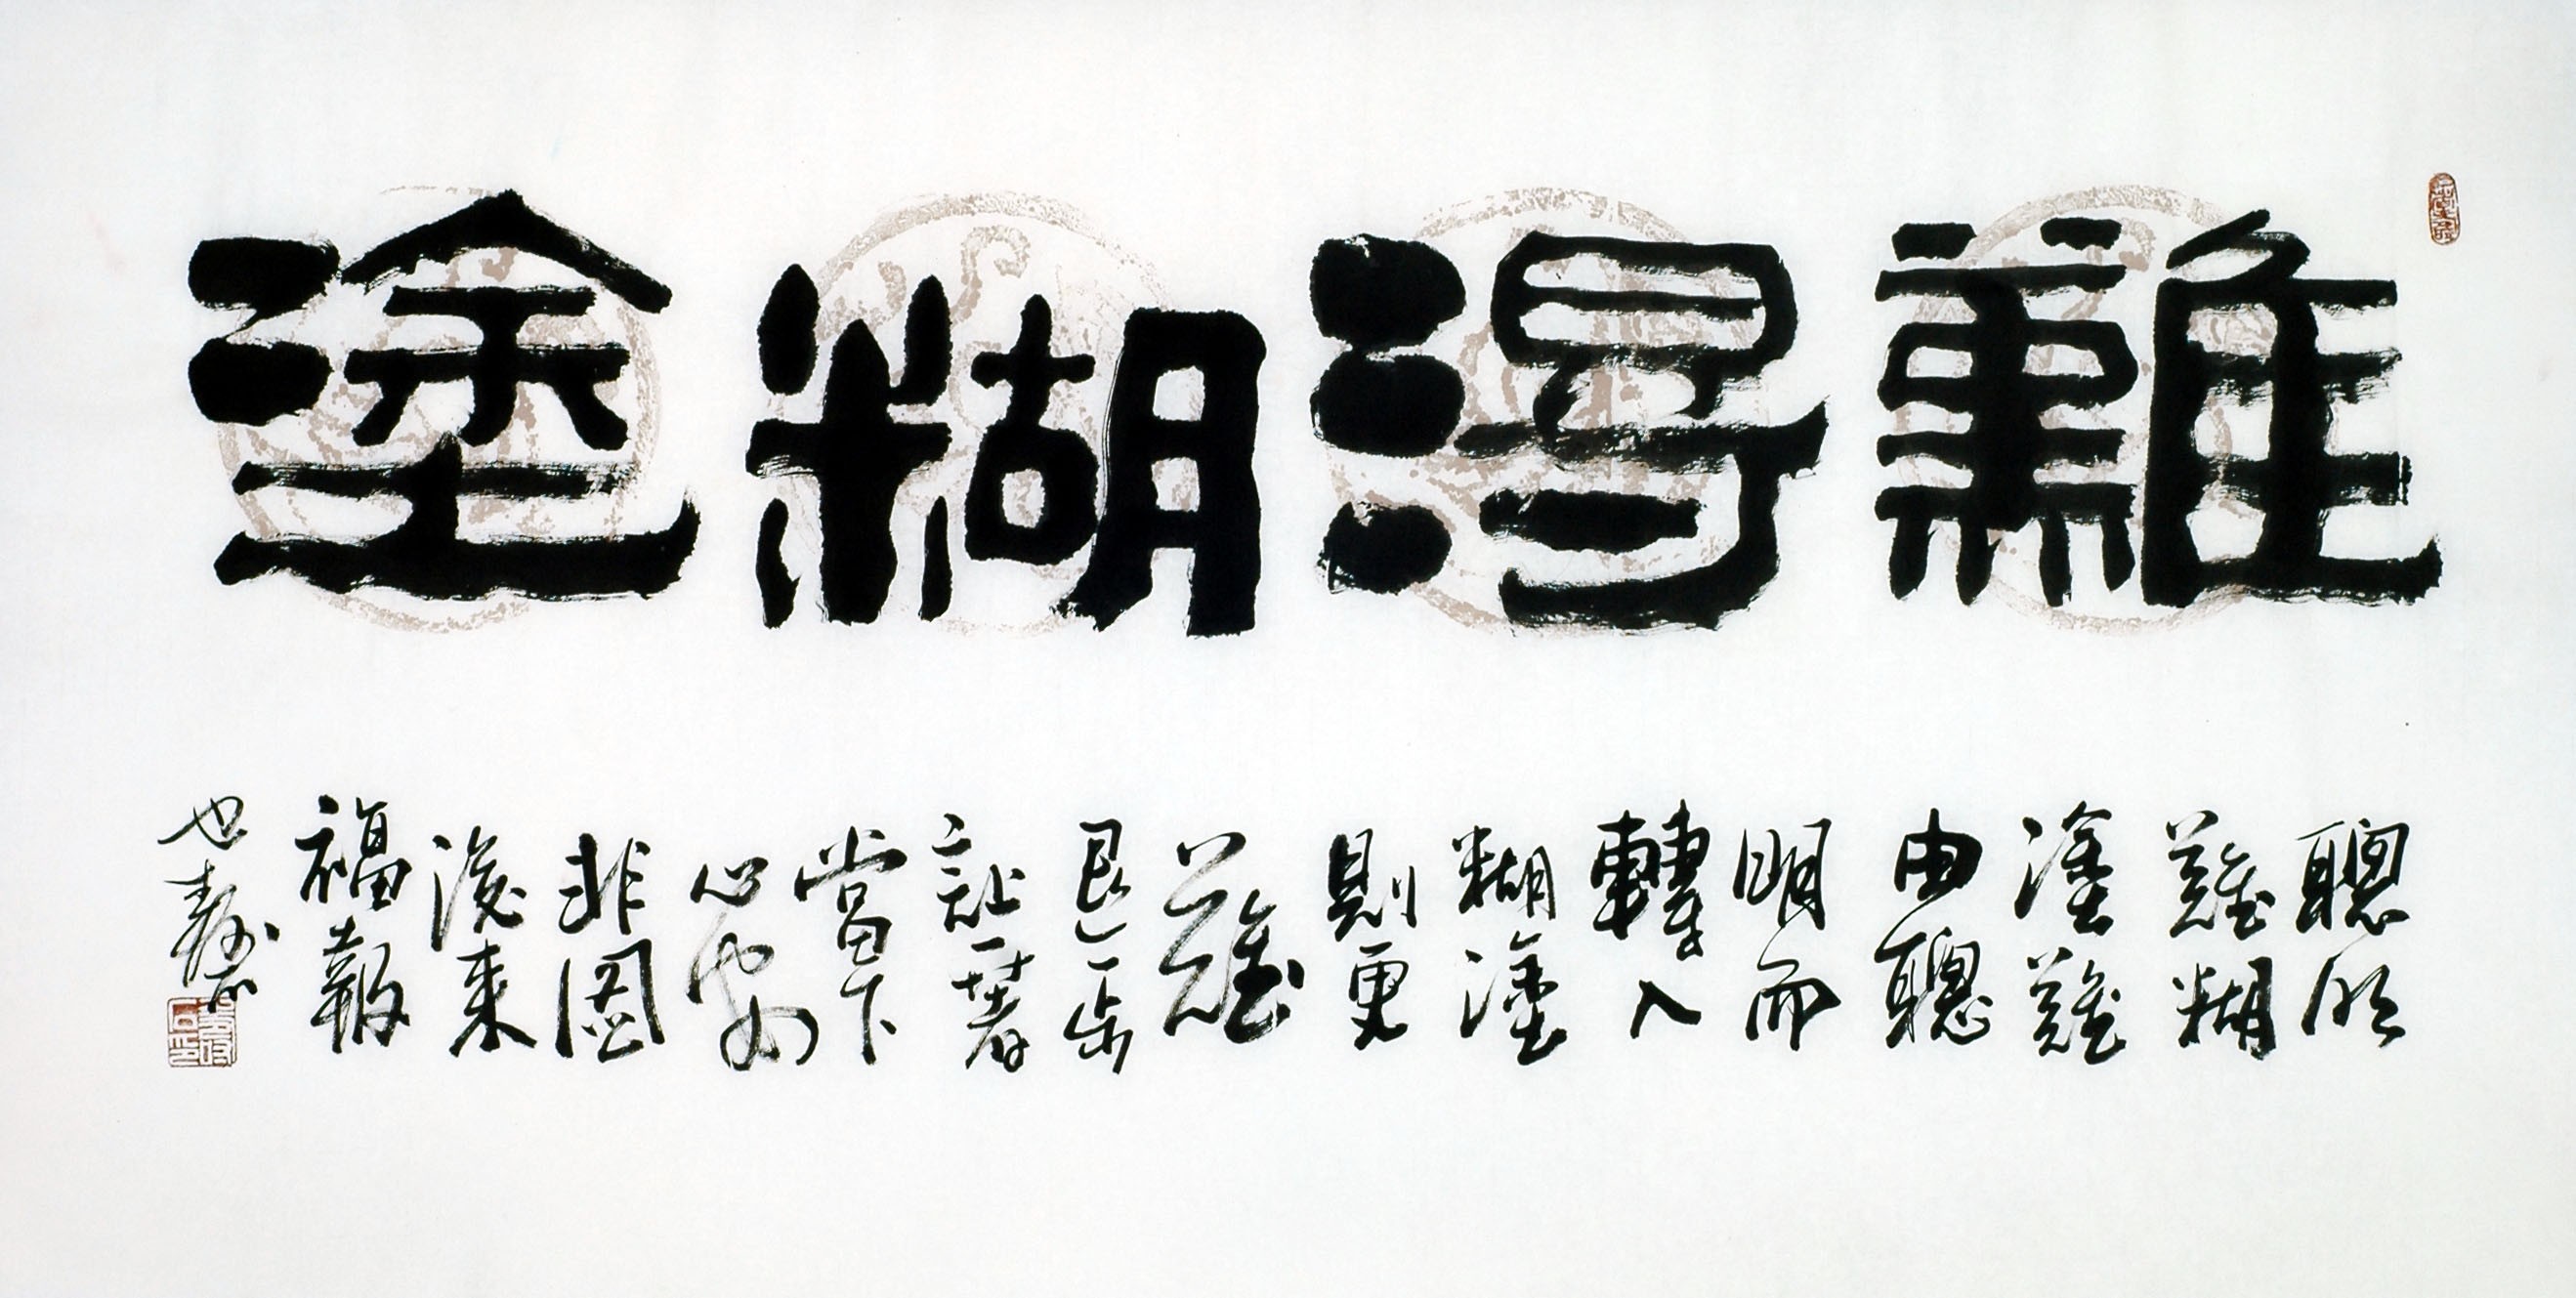 難得糊塗
聰明
難糊
塗難
由聰
明而
轉入
糊塗
則更
難
退一步
讓一著
當下
心安
非圖
後來
福報
也